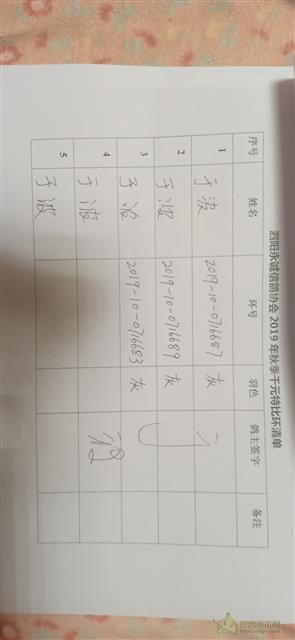 泗阳永诚信鸽协会 2019 年秋季千元特比环清单
序号 姓名 环号 羽色 鸽主签字 备注
1 于波 2019-10-0716687 灰
2 于波 2019-10-0716689 灰
3 于波 2019-10-0716683 灰
4 于波
5 于波